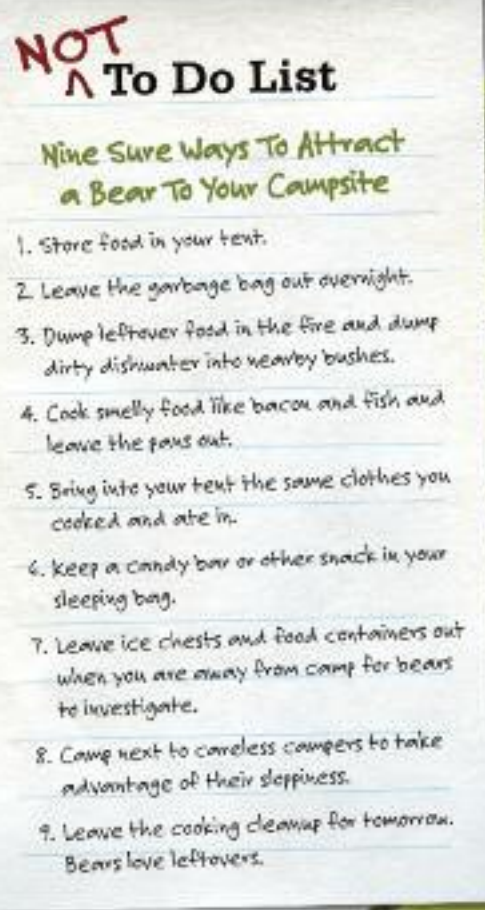 NOT
^ To Do List
Nine Sure Ways To Attract
a Bear To Your Campsite
1. Store food in your tent.
2. Leave the garbage bag out overnight.
3. Dump leftover food in the fire and dump
dirty dishwater into nearby bushes.
4. Cook smelly food like bacon and fish and
leave the pans out.
5. Bring into your tent the same clothes you
cooked and ate in.
6. Keep a candy bar or other snack in your
sleeping bag.
7. Leave ice chests and food containers out
when you are away from camp for bears
to investigate.
8. Camp next to careless campers to take
advantage of their sloppiness.
9. Leave the cooking cleanup for tomorrow.
Bears love leftovers.